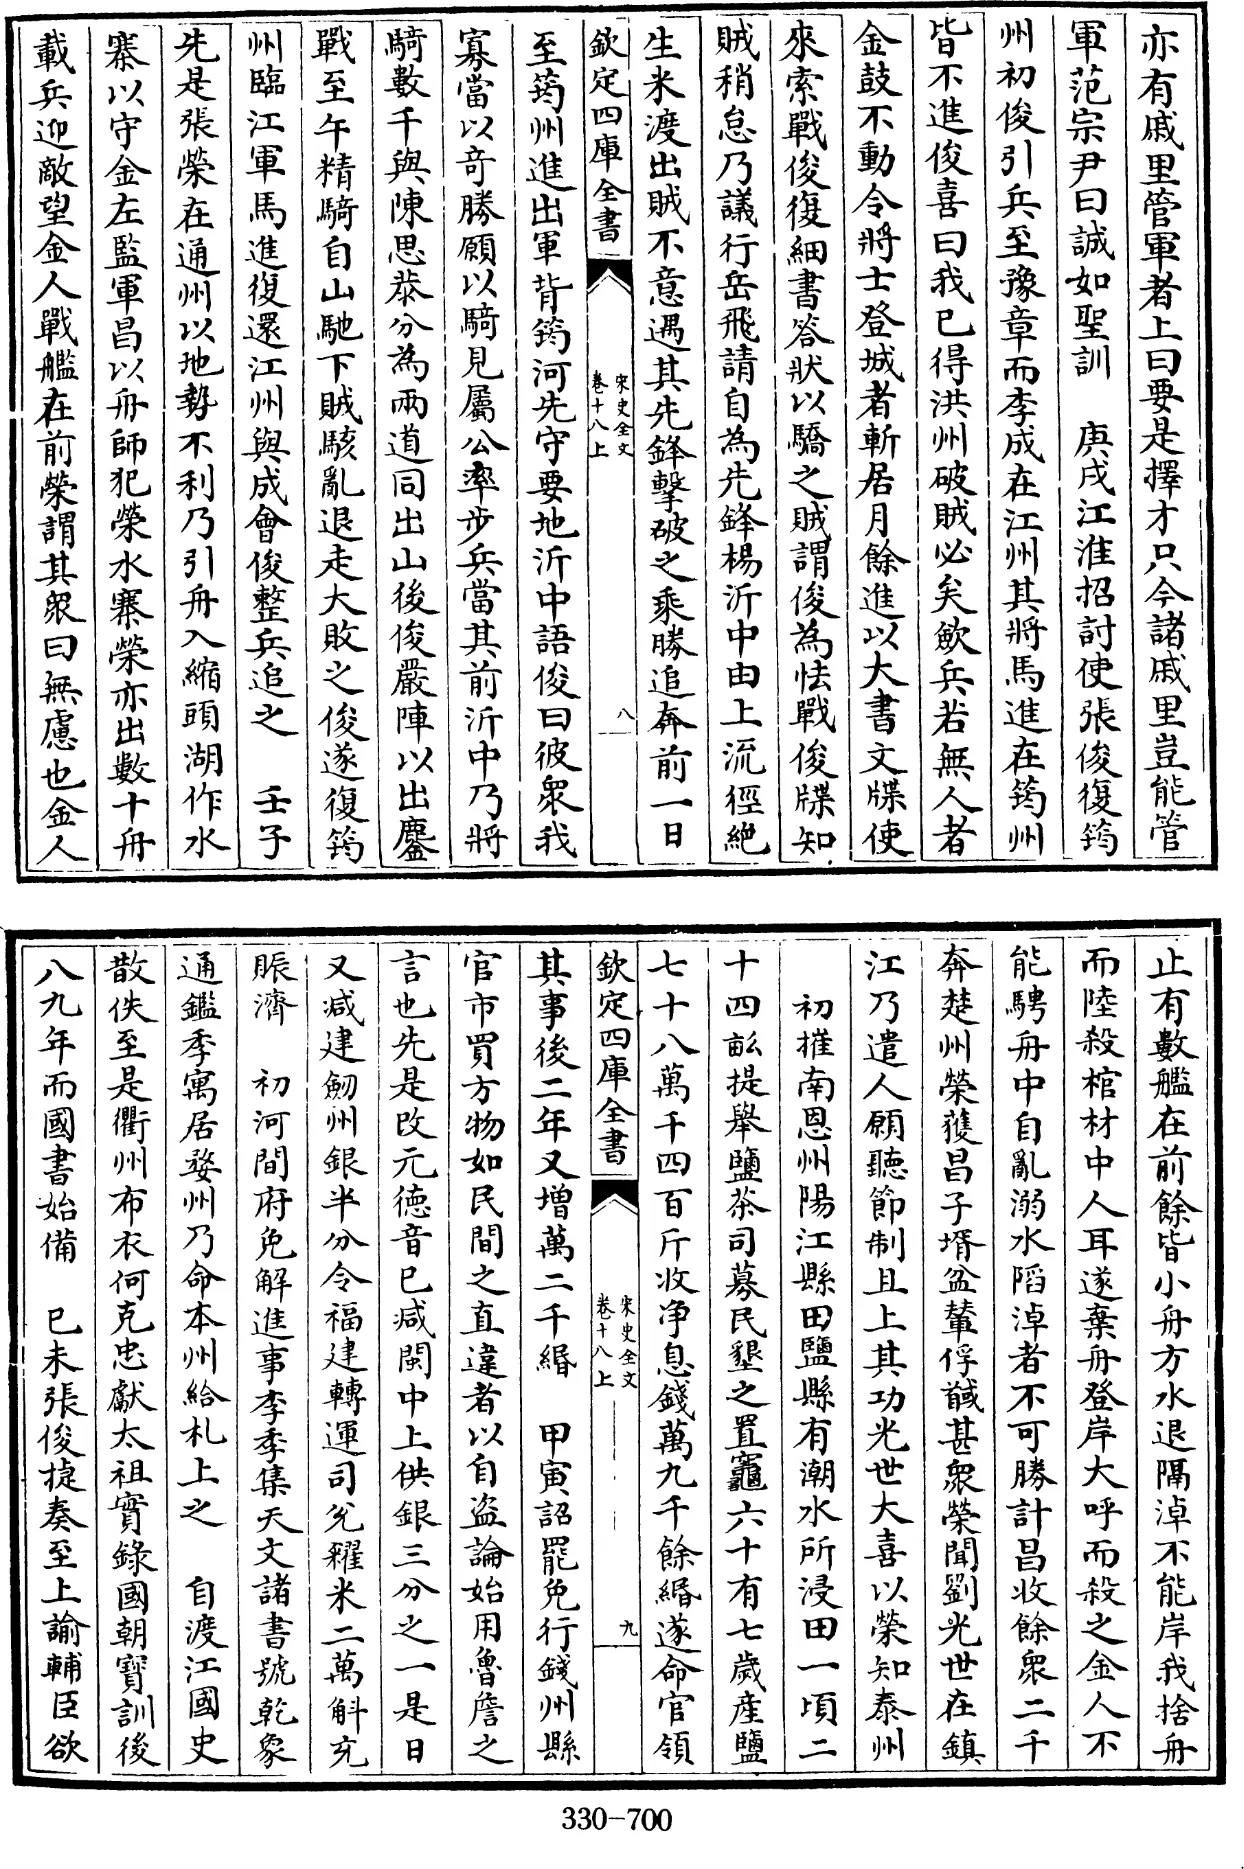 亦有戚里管軍者上曰要是擇才只今諸戚里豈能管
軍范宗尹曰誠如聖訓　庚戌江淮招討使張俊復筠
州初俊引兵至豫章而李成在江州其將馬進在筠州
皆不進俊喜曰我已得洪州破賊必矣歛兵若無人者
金鼓不動令將士登城者斬居月餘進以大書文牒使
來索戰俊復細書答狀以驕之賊謂俊為怯戰俊牒知
賊稍怠乃議行岳飛請自為先鋒楊沂中由上流徑絶
生米渡出賊不意遇其先鋒擊破之乘勝追奔前一日
欽定四庫全書
宋史全文
卷十八上
八
至筠州進出軍背筠河先守要地沂中語俊曰彼衆我
寡當以奇勝願以騎見屬公率步兵當其前沂中乃將
騎數千與陳思恭分為兩道同出山後俊嚴陣以出鏖
戰至午精騎自山馳下賊駭亂退走大敗之俊遂復筠
州臨江軍馬進復還江州與成會俊整兵追之　壬子
先是張榮在通州以地勢不利乃引舟入縮頭湖作水
寨以守金左監軍昌以舟師犯榮水寨榮亦出數十舟
載兵迎敵望金人戰艦在前榮謂其衆曰無慮也金人
止有數艦在前餘皆小舟方水退隔淖不能岸我捨舟
而陸殺棺材中人耳遂棄舟登岸大呼而殺之金人不
能騁舟中自亂溺水陷淖者不可勝計昌收餘衆二千
奔楚州榮獲昌子壻盆輦俘馘甚衆榮聞劉光世在鎮
江乃遣人願聽節制且上其功光世大喜以榮知泰州
初摧南恩州陽江縣田鹽縣有潮水所浸田一頃二
十四畝提舉鹽茶司募民墾之置竈六十有七歲産鹽
七十八萬千四百斤收净息錢萬九千餘緡遂命官領
欽定四庫全書
宋史全文
卷十八上
九
其事後二年又增萬二千緡　甲寅詔罷免行錢州縣
官市買方物如民間之直違者以自盗論始用魯詹之
言也先是改元德音已减閩中上供銀三分之一是日
又减建劒州銀半分令福建轉運司兊糴米二萬斛充
賑濟　初河間府免解進事李季集天文諸書號乾象
通鑑季寓居婺州乃命本州給札上之　自渡江國史
散佚至是衢州布衣何克忠獻太祖實錄國朝寶訓後
八九年而國書始備　已未張俊捷奏至上諭輔臣欲
330-700